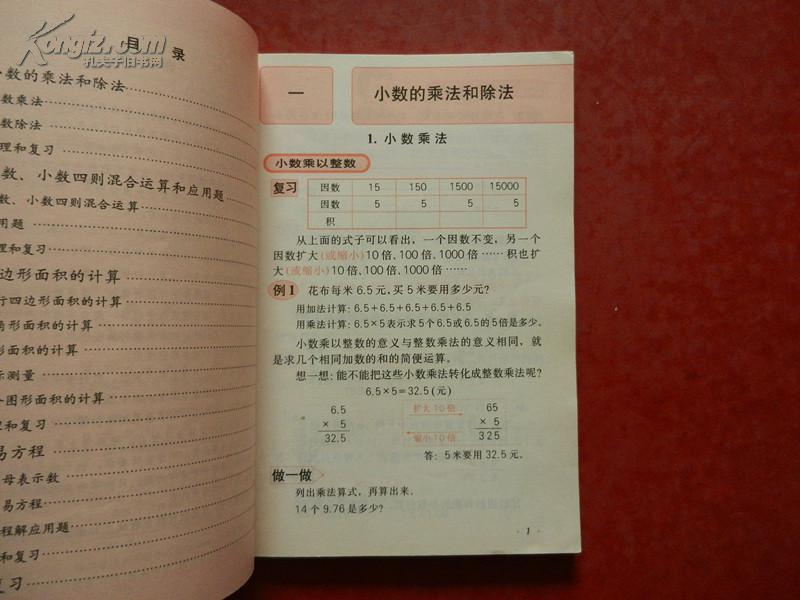 Kongfz.com
孔夫子旧书网
目 录
小数的乘法和除法
数乘法
数除法
理和复习
数、小数四则混合运算和应用题
数、小数四则混合运算
用题
理和复习
边形面积的计算
行四边形面积的计算
角形面积的计算
形面积的计算
际测量
合图形面积的计算
理和复习
易方程
母表示数
易方程
程解应用题
和复习
复习
一 小数的乘法和除法
1. 小数乘法
小数乘以整数
复习
因数 15 150 1500 15000
因数 5 5 5 5
积
从上面的式子可以看出,一个因数不变,另一个
因数扩大(或缩小)10倍、100倍、1000倍……积也扩
大(或缩小)10倍、100倍、1000倍……
例1 花布每米6.5元,买5米要用多少元?
用加法计算:6.5+6.5+6.5+6.5+6.5
用乘法计算:6.5×5表示求5个6.5或6.5的5倍是多少。
小数乘以整数的意义与整数乘法的意义相同,就
是求几个相同加数的和的简便运算。
想一想:能不能把这些小数乘法转化成整数乘法呢?
6.5×5=32.5(元)
6.5 扩大10倍 65
× 5 × 5
32.5 缩小10倍 325
答:5米要用32.5元。
做一做
列出乘法算式,再算出来.
14个9.76是多少?
· 1 ·